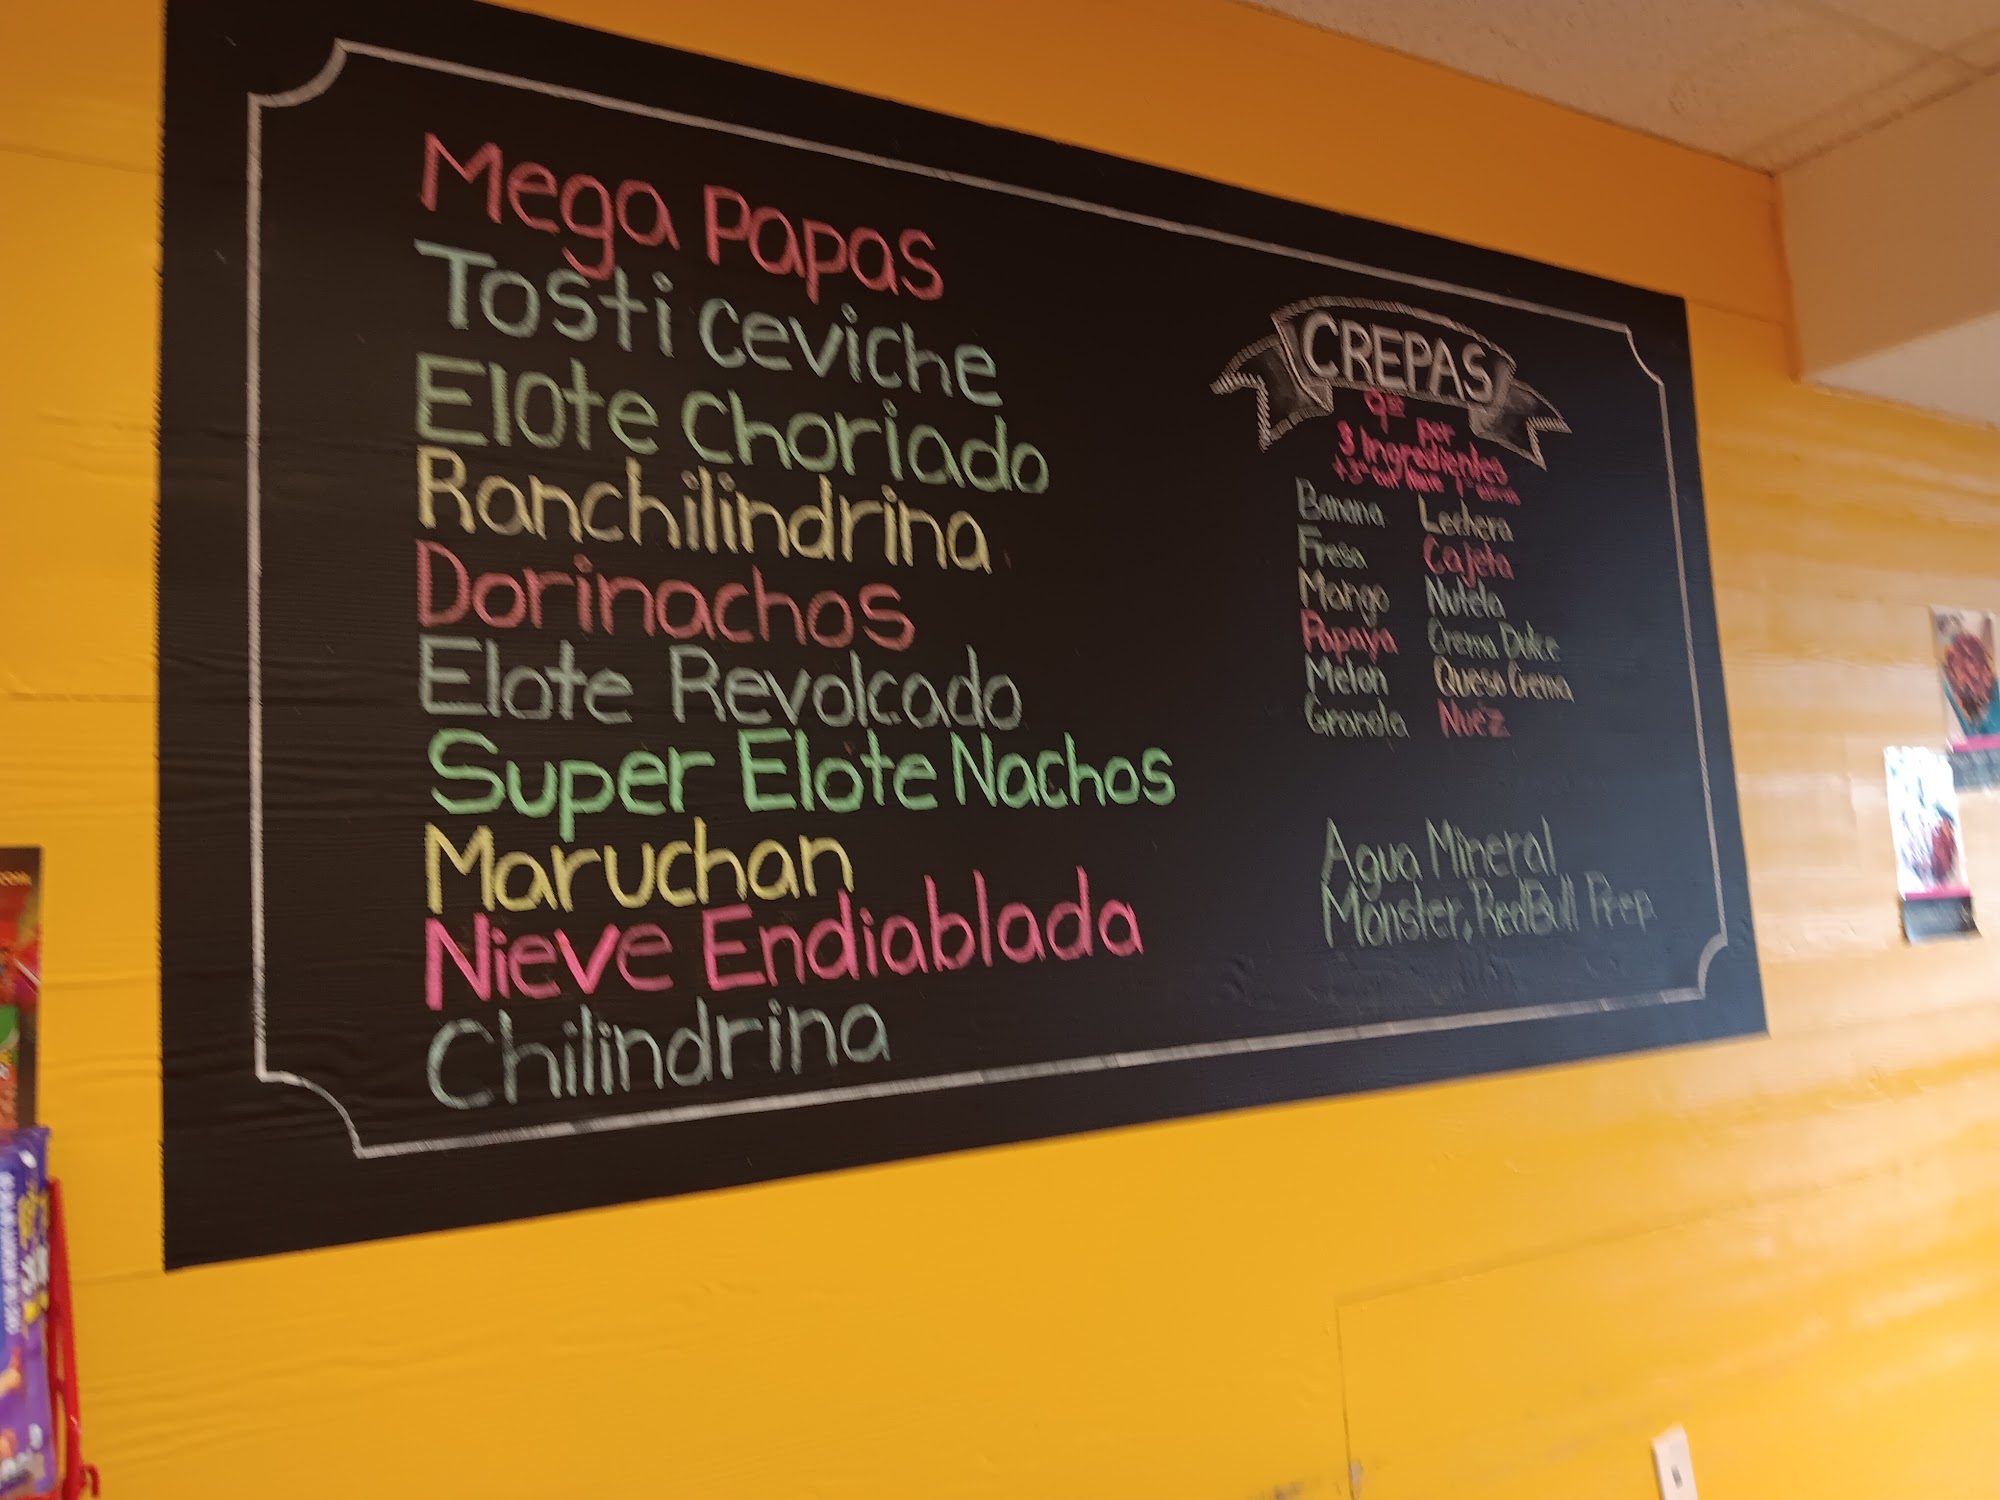 Mega Papas
Tosti ceviche
Elote Choriado
Ranchilindrina
Dorinachos
Elote Revolcado
Super Elote Nachos
Maruchan
Nieve Endiablada
Chilindrina
CREPAS
por
3 Ingredientes
Banana Lechera
Fresa Cajeta
Mango Nutela
Papaya Crema Dulce
Melon Queso Crema
Granola Nuez
Agua Mineral
Monster, RedBull Prep